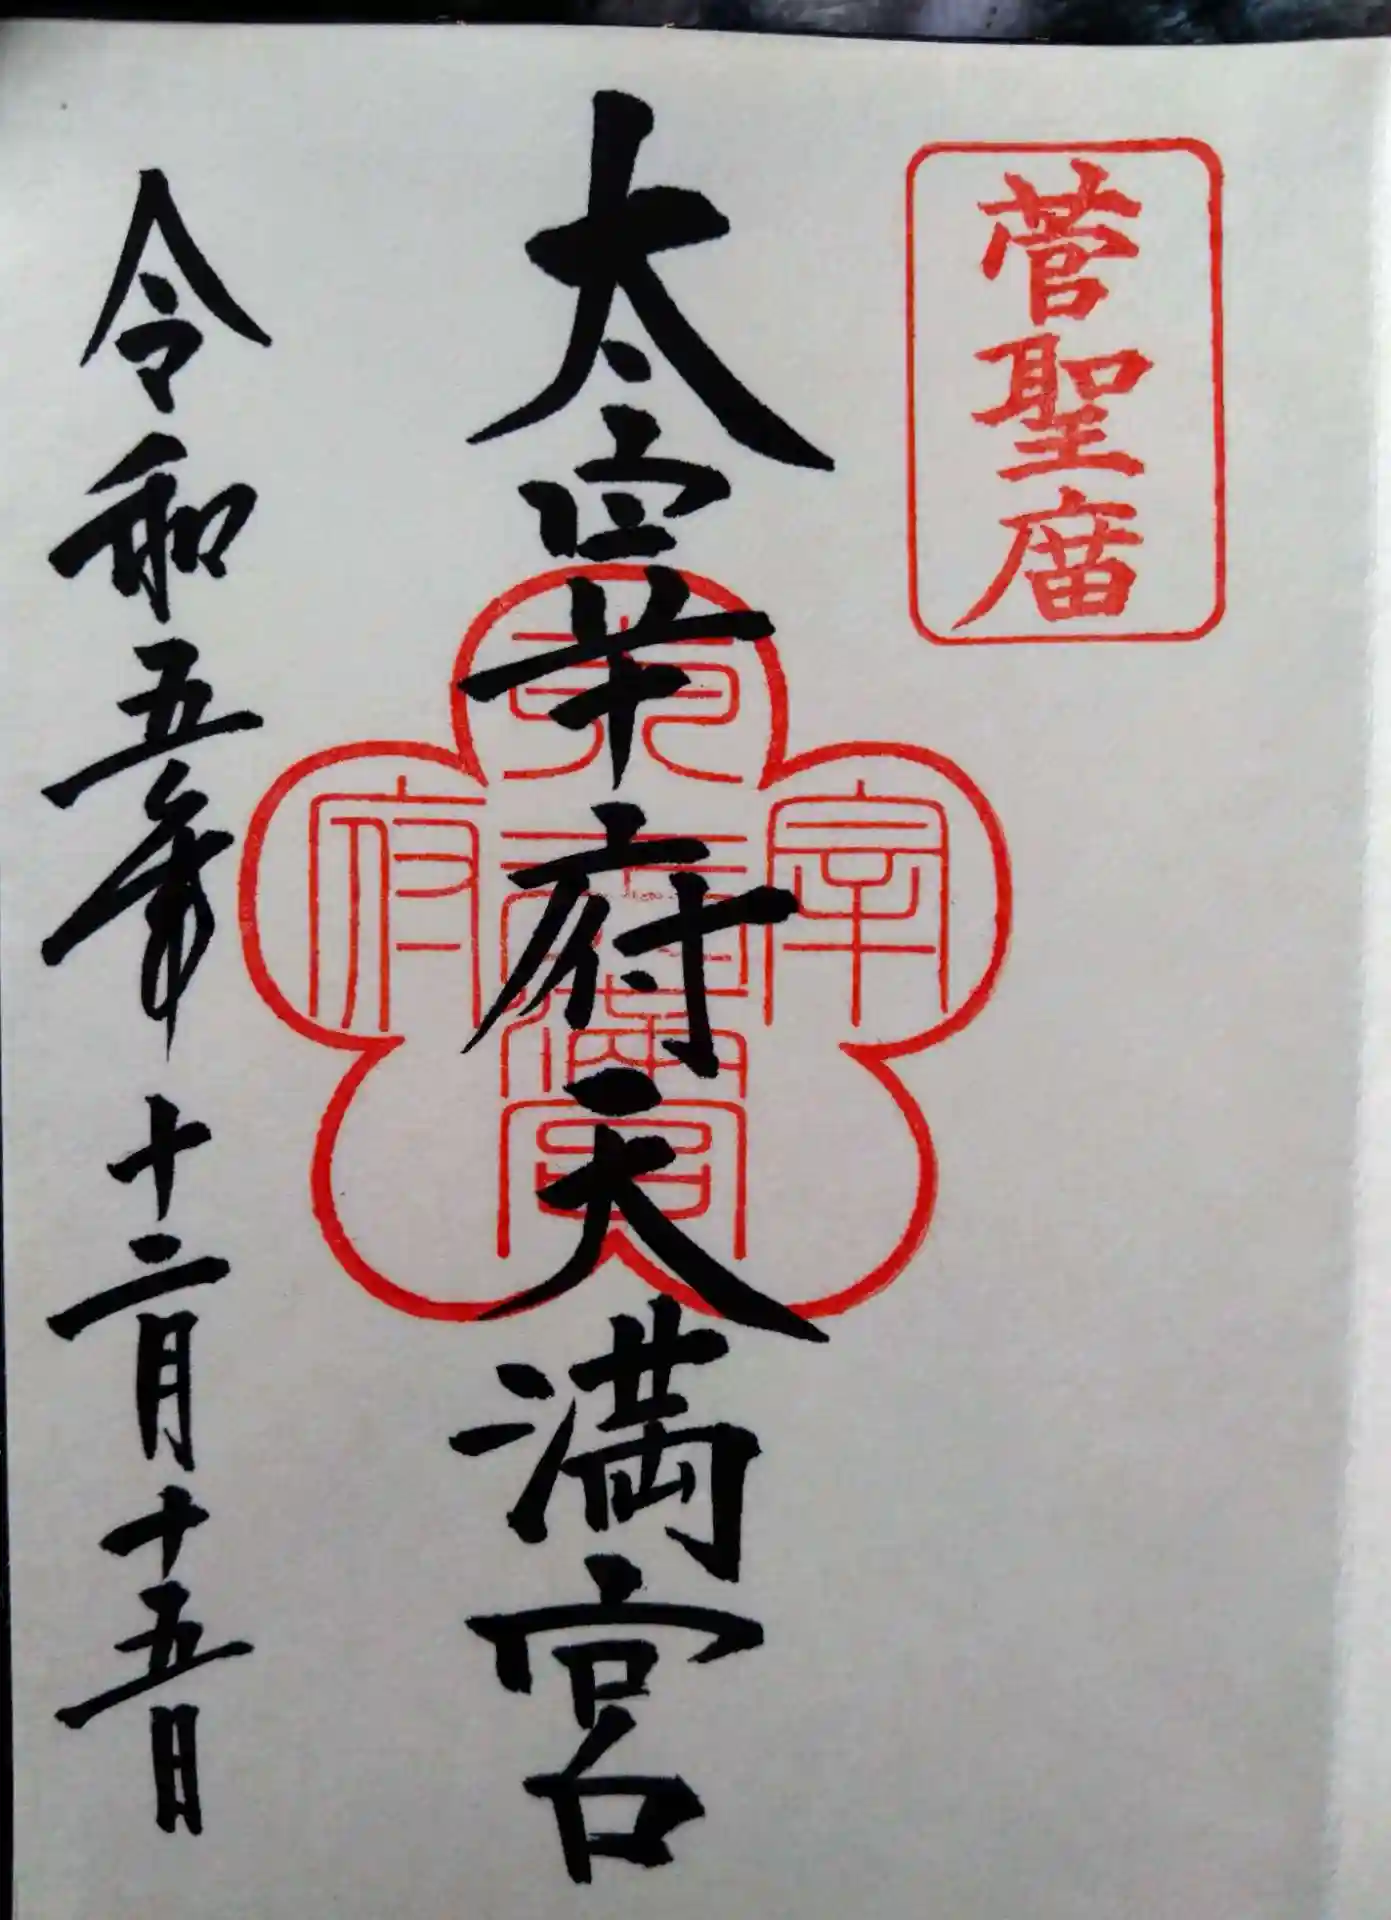 菅聖廟
太宰府天満宮
宰
府
満
宮
令和五年十二月十五日